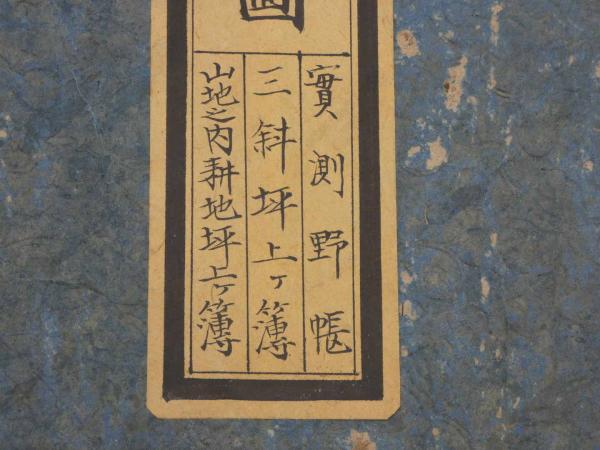 圖
實測野帳
三斜坪上ヶ簿
山地之内耕地坪上ヶ簿